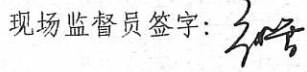 现场监督员签字: